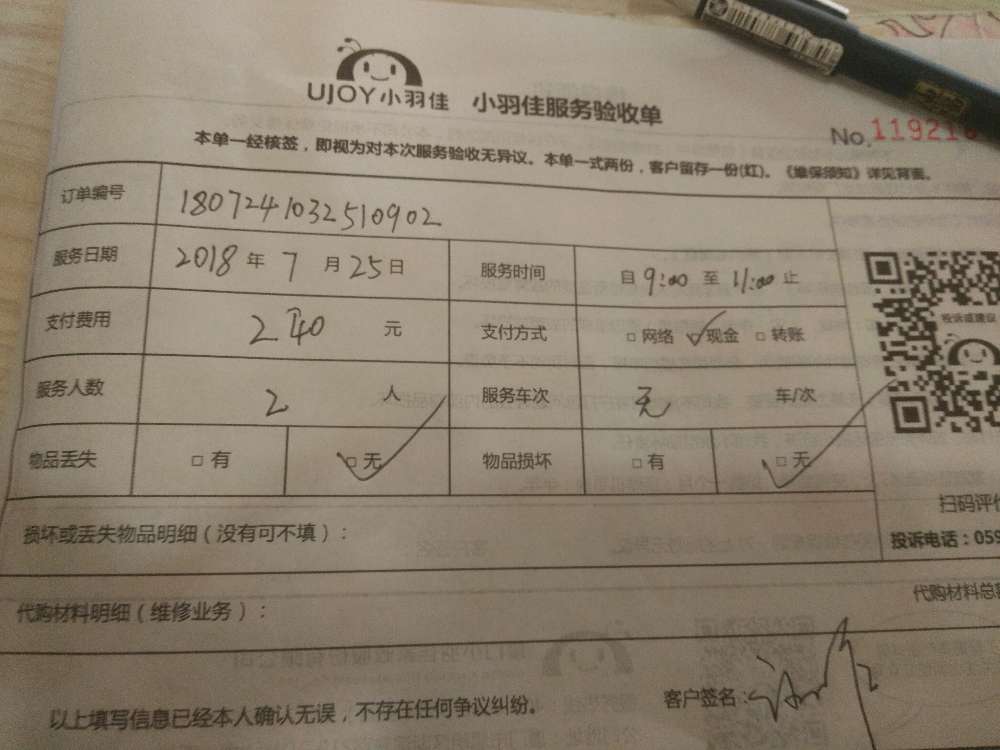 UJOY小羽佳 小羽佳服务验收单
No. 119216
本单一经核签，即视为对本次服务验收无异议。本单一式两份，客户留存一份(红)。《维保须知》详见背面。
订单编号 1807241032510902
服务日期 2018年7月25日 服务时间 自9:00至11:00止
支付费用 240元 支付方式 □网络 ✓现金 □转账
服务人数 2人 服务车次 无 车/次
物品丢失 □有 □无 物品损坏 □有 □无
投诉或建议
扫码评
损坏或丢失物品明细（没有可不填）：
投诉电话：059
代购材料明细（维修业务）：
代购材料总
以上填写信息已经本人确认无误，不存在任何争议纠纷。
客户签名：